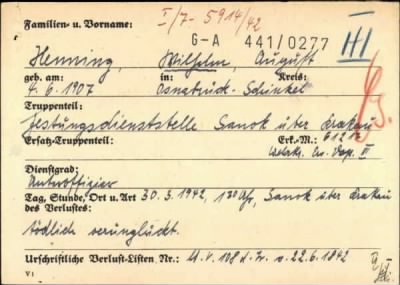 I/7- 5914/42
Familien- u. Vorname:
G-A 441/0277
III
Henning, Wilhelm August
geb. am: in: Kreis:
4. 6. 1907 Osnabrück-Schinkel
Truppenteil:
Festungsdienststelle Sanok über Krakau
Ersatz-Truppenteil: Erk.-M.: 61212
Dienstgrad:
Unteroffizier
Tag, Stunde, Ort u. Art 30. 3. 1942, Sanok über Krakau
des Verlustes:
tödlich verunglückt.
Urschriftliche Verlust-Listen Nr.: 22.6.1942
V 1